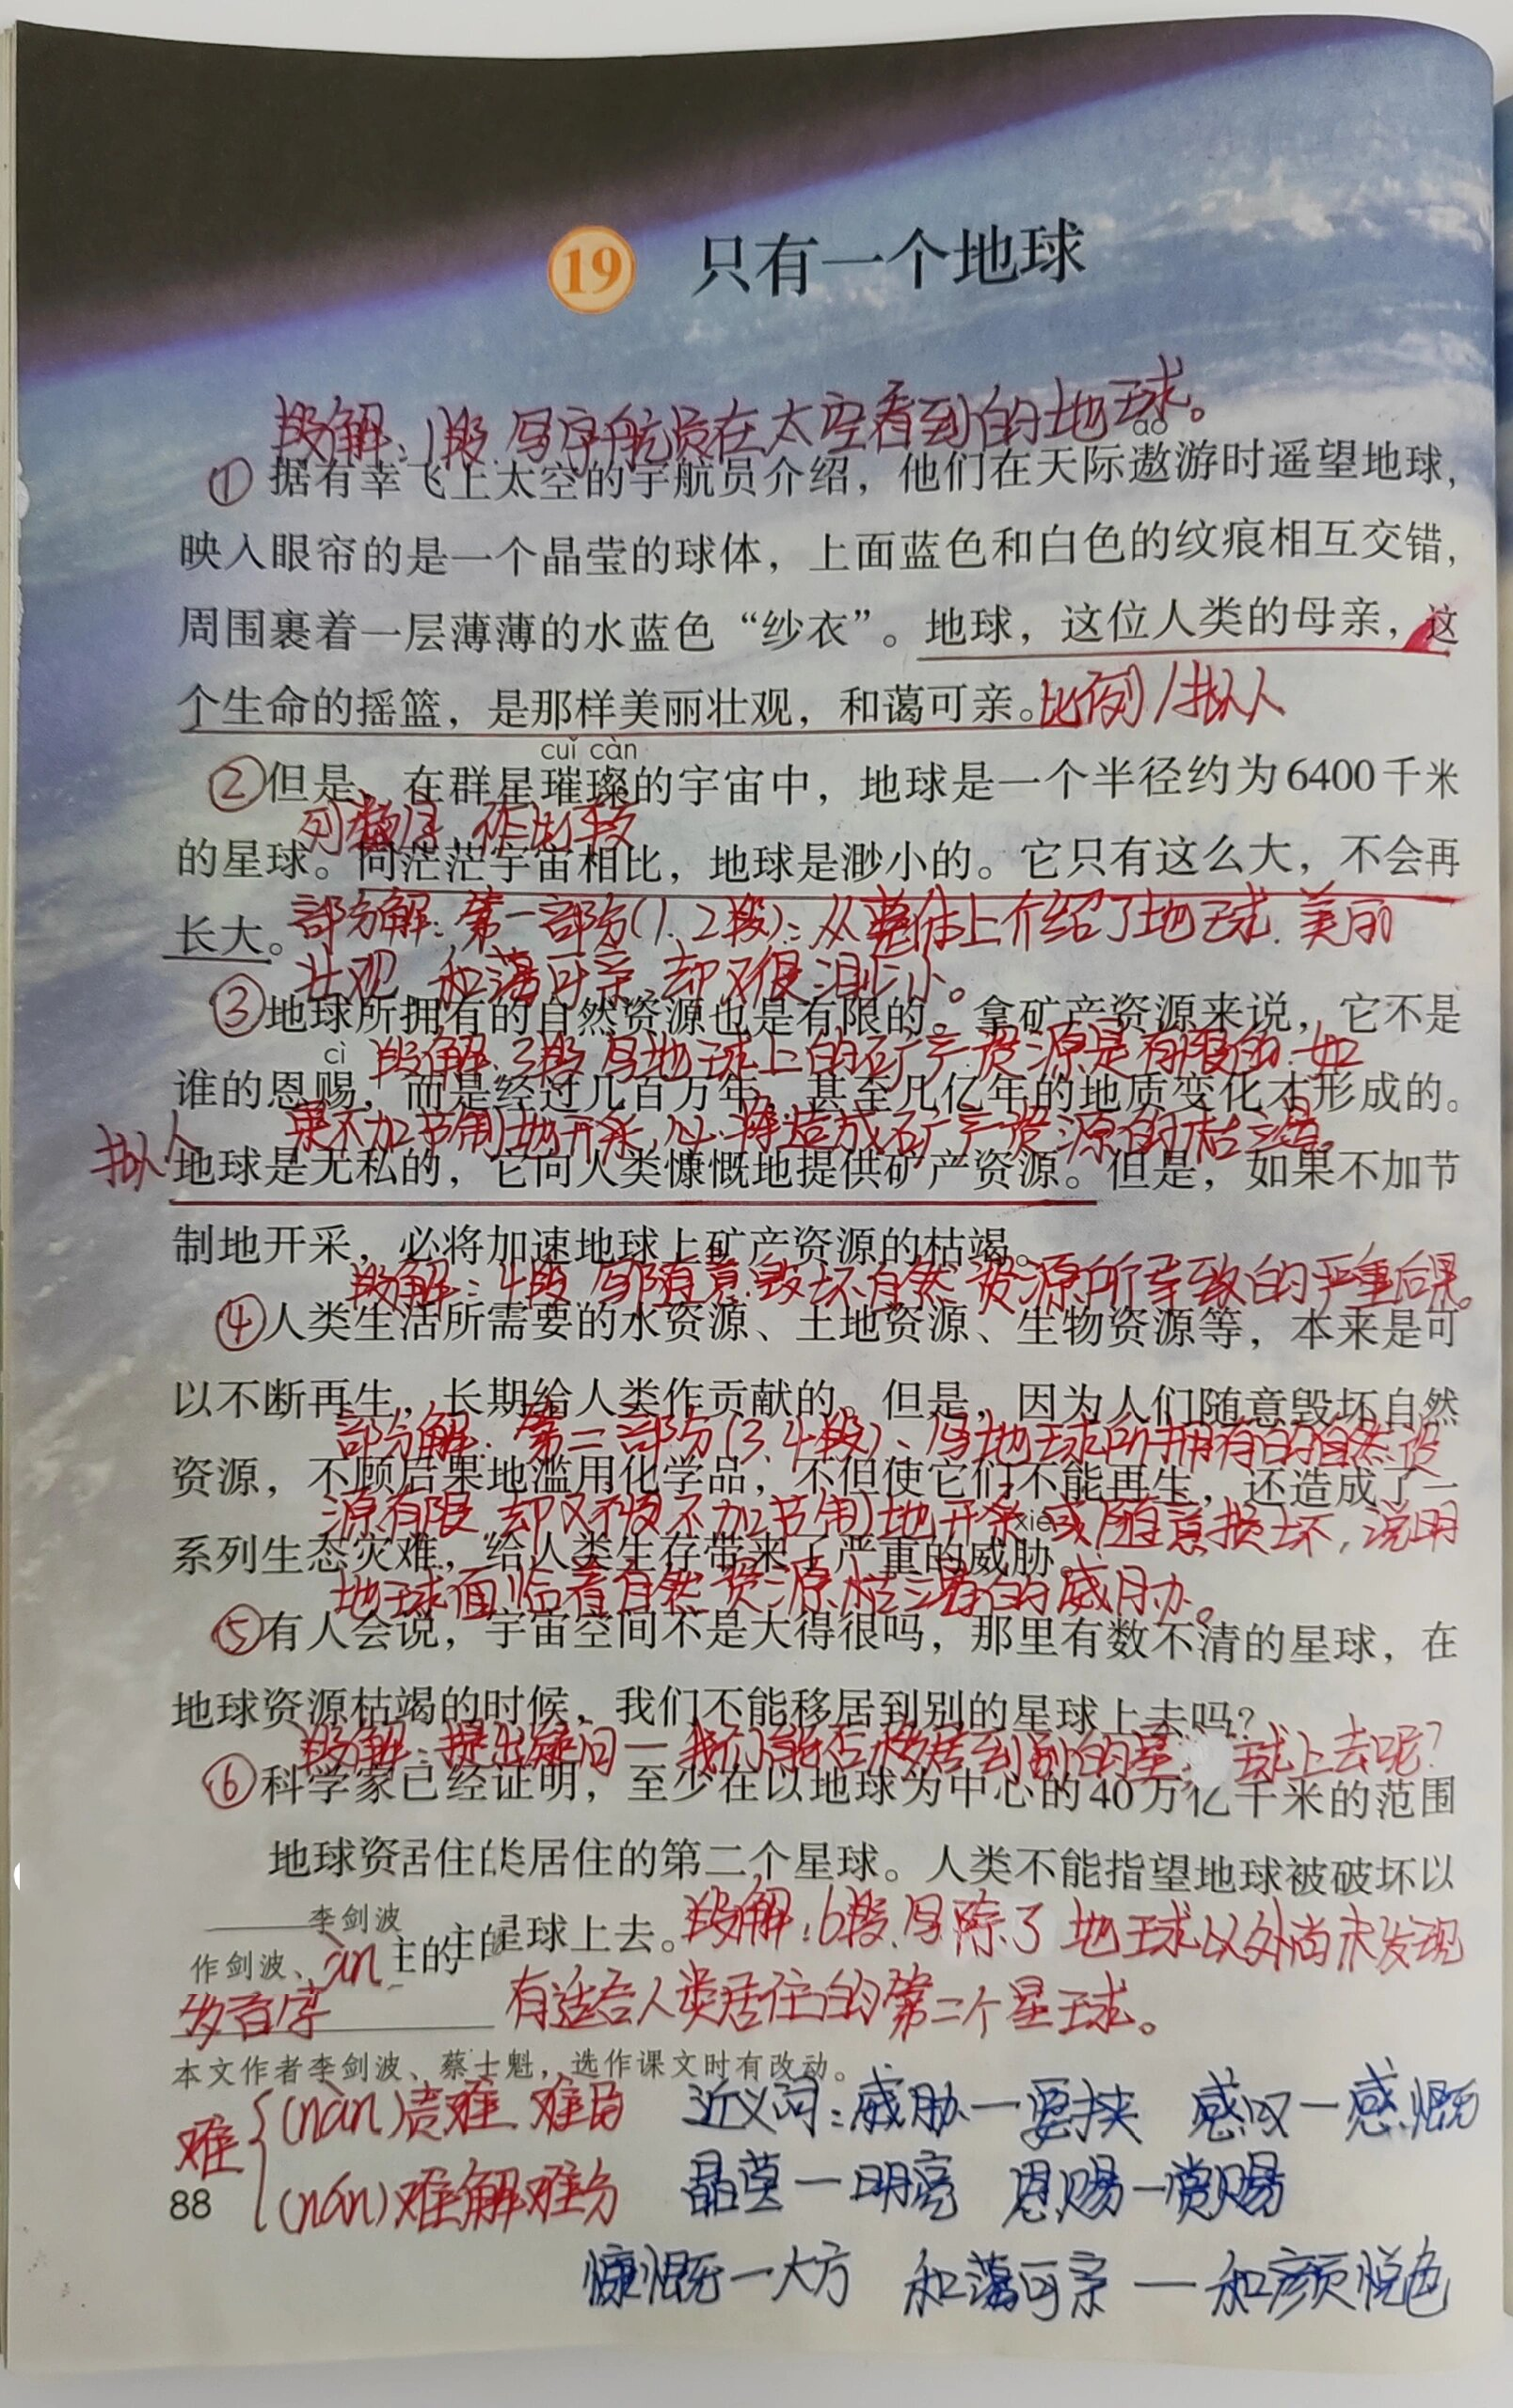 19 只有一个地球
段解：1段 写宇航员在太空看到的地球。
áo
①据有幸飞上太空的宇航员介绍，他们在天际遨游时遥望地球，
映入眼帘的是一个晶莹的球体，上面蓝色和白色的纹痕相互交错，
周围裹着一层薄薄的水蓝色“纱衣”。地球，这位人类的母亲，这
个生命的摇篮，是那样美丽壮观，和蔼可亲。比例/拟人
cuǐ càn
②但是，在群星璀璨的宇宙中，地球是一个半径约为6400千米
列数字、作比较
的星球。同茫茫宇宙相比，地球是渺小的。它只有这么大，不会再
长大。部分解：第一部分(1、2段)：从整体上介绍了地球、美丽
壮观、和蔼可亲、却又很渺小。
③地球所拥有的自然资源也是有限的。拿矿产资源来说，它不是
cì 段解：3段 写地球上的矿产资源是有限的，如
谁的恩赐，而是经过几百万年，甚至几亿年的地质变化才形成的。
果不加节制地开采，必将造成矿产资源的枯竭。
拟人 地球是无私的，它向人类慷慨地提供矿产资源。但是，如果不加节
制地开采，必将加速地球上矿产资源的枯竭。
段解：4段 写随意毁坏自然资源所导致的严重后果。
④人类生活所需要的水资源、土地资源、生物资源等，本来是可
以不断再生，长期给人类作贡献的。但是，因为人们随意毁坏自然
部分解：第二部分(3、4段)、写地球所拥有的自然资
资源，不顾后果地滥用化学品，不但使它们不能再生，还造成了一
源有限 却又不加节制地开采或随意损坏，说明
xié
系列生态灾难，给人类生存带来了严重的威胁。
地球面临着自然资源枯竭的威胁。
⑤有人会说，宇宙空间不是大得很吗，那里有数不清的星球，在
地球资源枯竭的时候，我们不能移居到别的星球上去吗？
段解：提出疑问—我们能否移居到别的星球上去呢？
⑥科学家已经证明，至少在以地球为中心的40万亿千米的范围
地球资居住类居住的第二个星球。人类不能指望地球被破坏以
李剑波
星球上去。段解：6段、写除了地球以外尚未发现
作剑波、àn 主的
多音字 有适合人类居住的第二个星球。
本文作者李剑波、蔡士魁，选作课文时有改动。
难{(nàn)责难 难民
(nán)难解难分
近义词：威胁—要挟 感叹—感慨
晶莹—明亮 恩赐—赏赐
慷慨—大方 和蔼可亲—和颜悦色
88